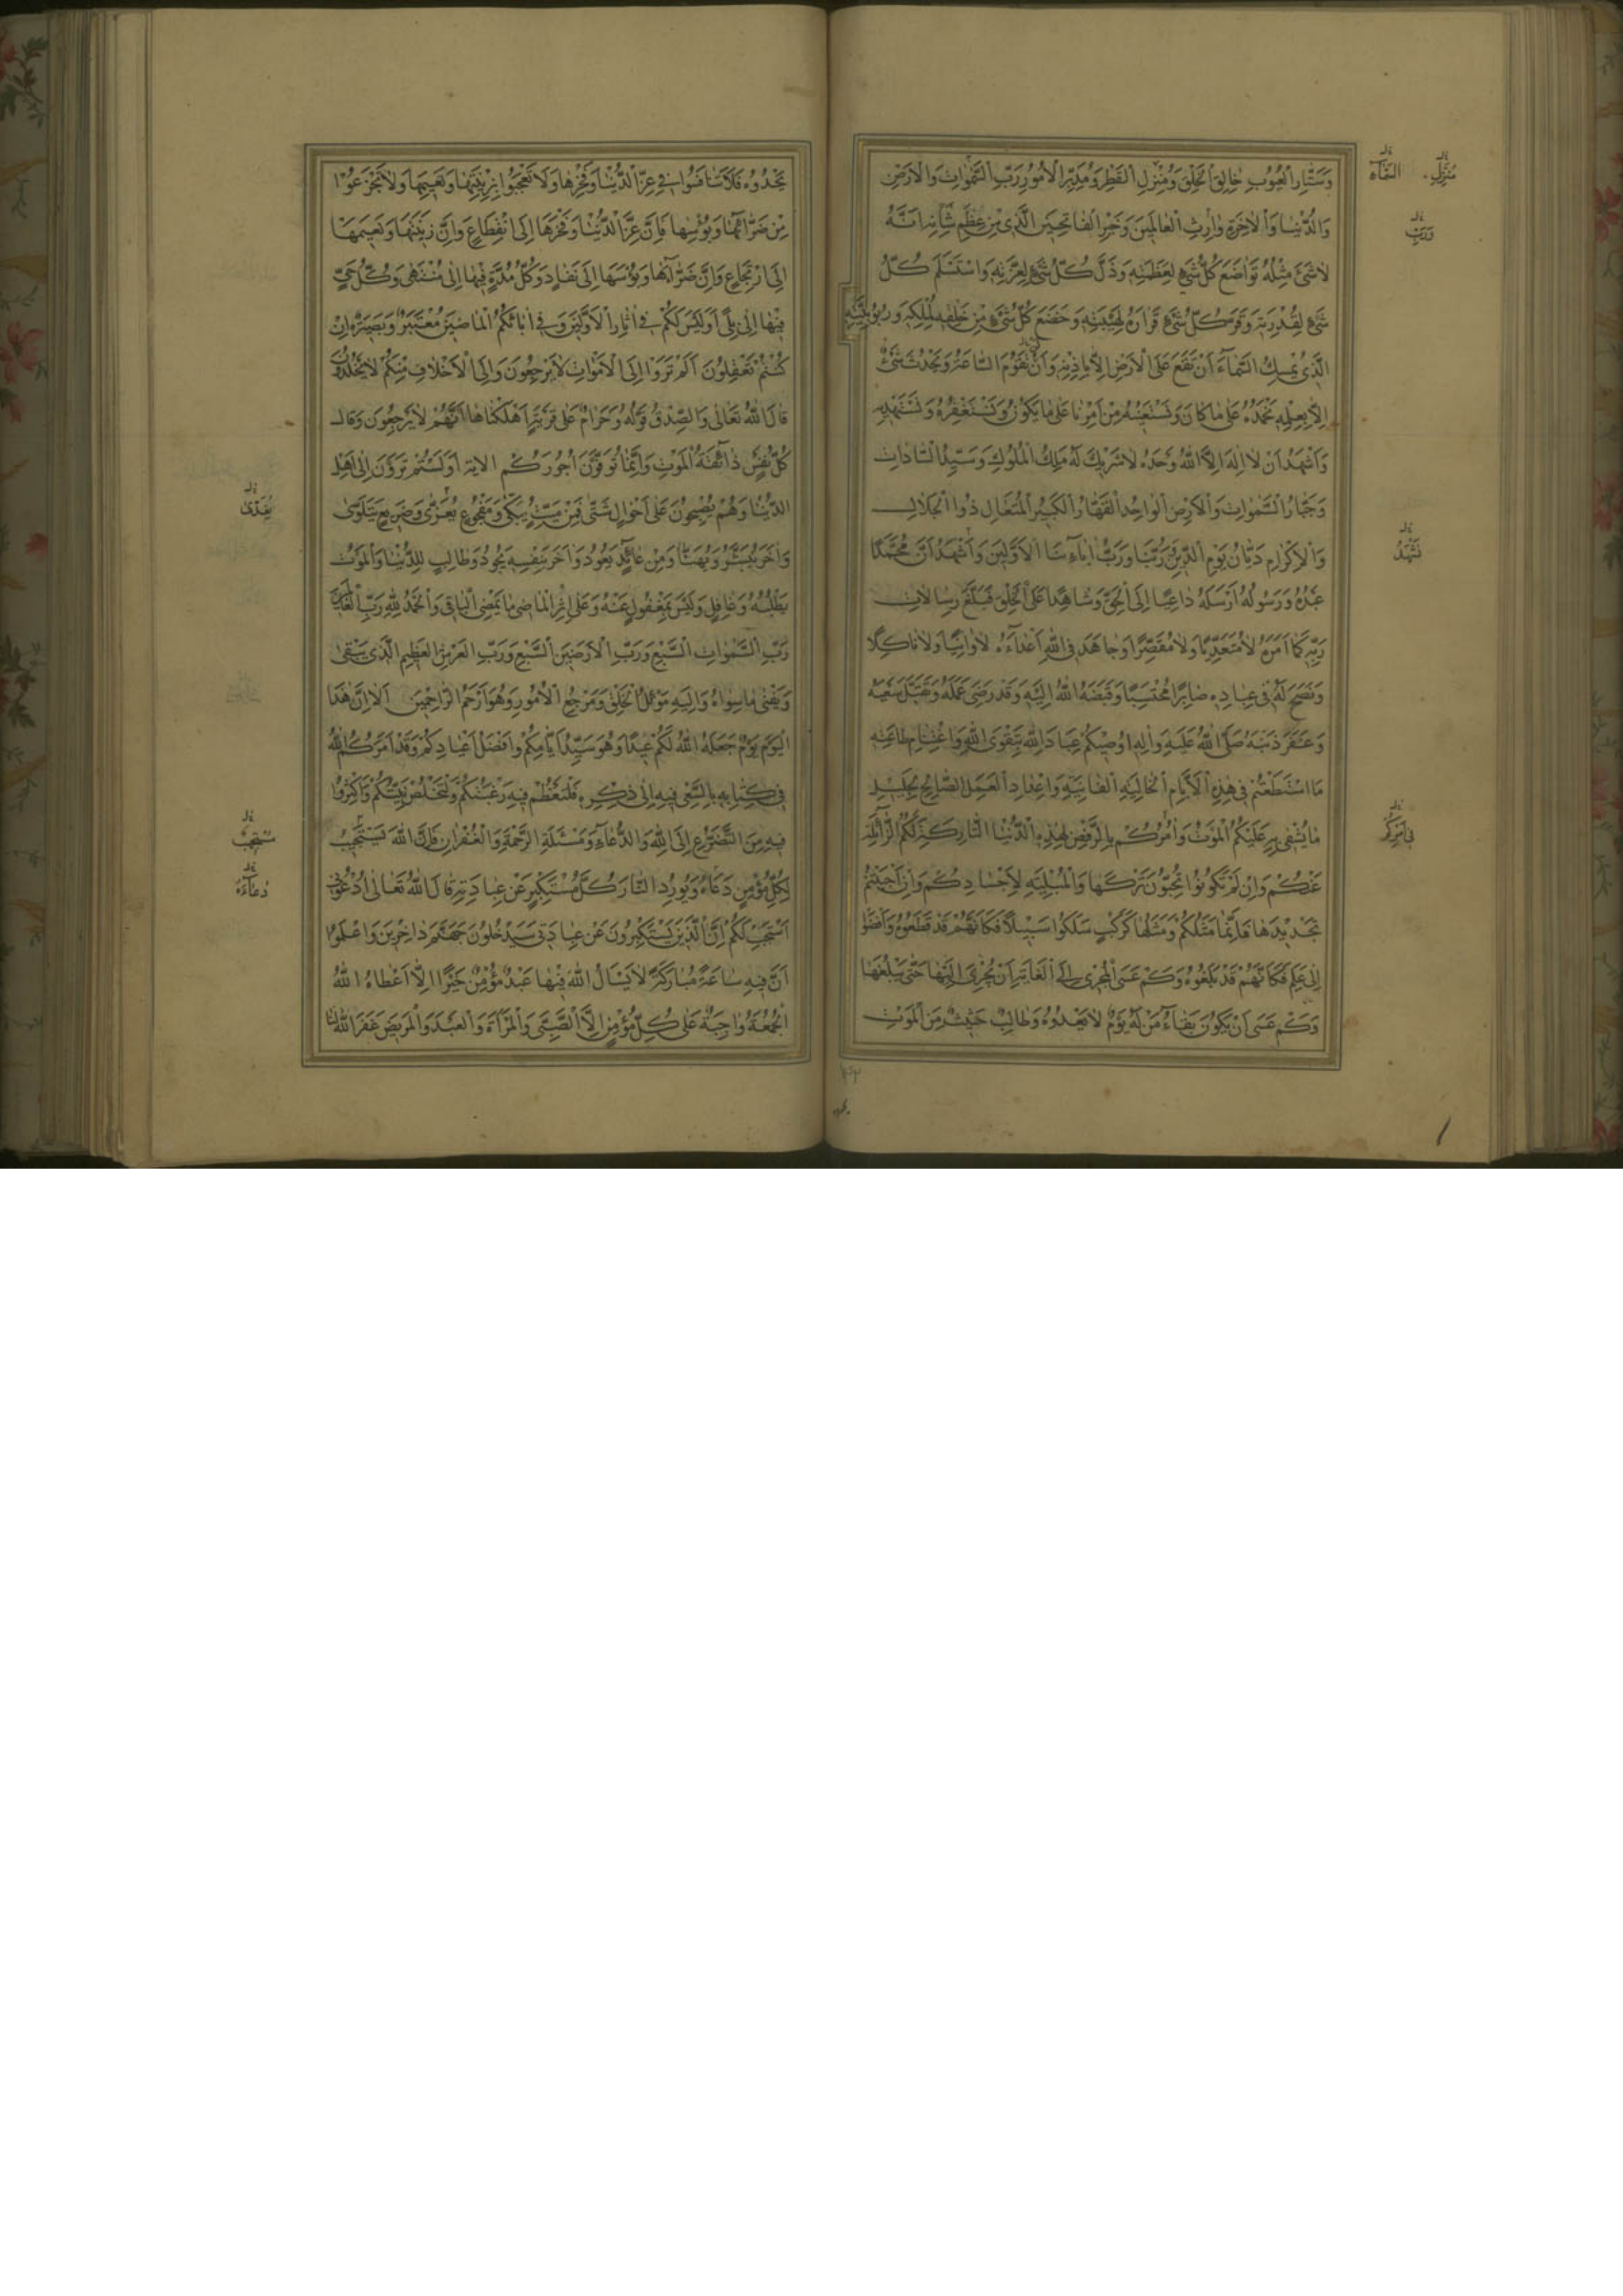 وَسَتّٰارِ الْعُيُوبِ خٰالِقِ الْخَلْقِ وَمُنْزِلِ الْقَطْرِ وَمُدَبِّرِ الْاُمُورِ رَبِّ السَّمٰوٰاتِ وَالْاَرْضِ
وَالدُّنْيٰا وَالْاٰخِرَةِ وٰارِثِ الْعٰالَمِينَ وَخَيْرِ الْفٰاتِحِينَ الَّذِى مِنْ عِظَمِ شَأْنِهِ اَنَّهُ
لٰا شَىْءَ مِثْلُهُ تَوٰاضَعَ كُلُّ شَىْءٍ لِعَظَمَتِهِ وَذَلَّ كُلُّ شَىْءٍ لِعِزَّتِهِ وَاسْتَسْلَمَ كُلُّ
شَىْءٍ لِقُدْرَتِهِ وَقَرَّ كُلُّ شَىْءٍ قَرٰارَهُ لِهَيْبَتِهِ وَخَضَعَ كُلُّ شَىْءٍ مِنْ خَلْقِهِ لِمُلْكِهِ وَرُبُوبِيَّتِهِ
الَّذِى يُمْسِكُ السَّمٰآءَ اَنْ تَقَعَ عَلَى الْاَرْضِ اِلّٰا بِاِذْنِهِ وَاَنْ تَقُومَ السّٰاعَةُ وَيَحْدُثَ شَىْءٌ
اِلّٰا بِعِلْمِهِ نَحْمَدُهُ عَلٰى مٰا كٰانَ وَنَسْتَعِينُهُ مِنْ اَمْرِنٰا عَلٰى مٰا يَكُونُ وَنَسْتَغْفِرُهُ وَنَسْتَهْدِيهِ
وَاَشْهَدُ اَنْ لٰا اِلٰهَ اِلَّا اللّٰهُ وَحْدَهُ لٰا شَرِيكَ لَهُ مَلِكُ الْمُلُوكِ وَسَيِّدُ السّٰادٰاتِ
وَجَبّٰارُ السَّمٰوٰاتِ وَالْاَرْضِ الْوٰاحِدُ الْقَهّٰارُ الْكَبِيرُ الْمُتَعٰالِ ذُوا الْجَلٰالِ
وَالْاِكْرٰامِ دَيّٰانُ يَوْمِ الدِّينِ رَبُّنٰا وَرَبُّ اٰبٰآءِنَا الْاَوَّلِينَ وَاَشْهَدُ اَنَّ مُحَمَّدًا
عَبْدُهُ وَرَسُولُهُ اَرْسَلَهُ دٰاعِيًا اِلَى الْحَقِّ وَشٰاهِدًا عَلَى الْخَلْقِ فَبَلَّغَ رِسٰالٰاتِ
رَبِّهِ كَمٰا اَمَرَهُ لٰا مُتَعَدِّيًا وَلٰا مُقَصِّرًا وَجٰاهَدَ فِى اللّٰهِ اَعْدٰآءَهُ لٰا وٰانِيًا وَلٰا نٰاكِلًا
وَنَصَحَ لَهُ فِى عِبٰادِهِ صٰابِرًا مُحْتَسِبًا وَقَبَضَهُ اللّٰهُ اِلَيْهِ وَقَدْ رَضِىَ عَمَلَهُ وَتَقَبَّلَ سَعْيَهُ
وَغَفَرَ ذَنْبَهُ صَلَّى اللّٰهُ عَلَيْهِ وَاٰلِهِ اُوصِيكُمْ عِبٰادَ اللّٰهِ بِتَقْوَى اللّٰهِ وَاغْتِنٰامِ طٰاعَتِهِ
مَا اسْتَطَعْتُمْ فِى هٰذِهِ الْاَيّٰامِ الْخٰالِيَةِ الْفٰانِيَةِ وَاِعْدٰادِ الْعَمَلِ الصّٰالِحِ لِجَلِيلِ
مٰا يُشْفِى بِهِ عَلَيْكُمُ الْمَوْتُ وَاٰمُرُكُمْ بِالرَّفْضِ لِهٰذِهِ الدُّنْيَا التّٰارِكَةِ لَكُمُ الزّٰآئِلَةِ
عَنْكُمْ وَاِنْ لَمْ تَكُونُوا تُحِبُّونَ تَرْكَهٰا وَالْمُبْلِيَةِ لِاَجْسٰادِكُمْ وَاِنْ اَحْبَبْتُمْ
تَجْدِيدَهٰا فَاِنَّمٰا مَثَلُكُمْ وَمَثَلُهٰا كَرَكْبٍ سَلَكُوا سَبِيلًا فَكَاَنَّهُمْ قَدْ قَطَعُوهُ وَاَفْضَوْا
اِلٰى عَلَمٍ فَكَاَنَّهُمْ قَدْ بَلَغُوهُ وَكَمْ عَسَى الْمُجْرِى اِلَى الْغٰايَةِ اَنْ يُجْرِىَ اِلَيْهٰا حَتّٰى يَبْلُغَهٰا
وَكَمْ عَسٰى اَنْ يَكُونَ بَقٰآءُ مَنْ لَهُ يَوْمٌ لٰا يَعْدُوهُ وَطٰالِبٌ حَثِيثٌ مِنَ الْمَوْتِ
مُنْزِلِ
السَّمٰآءِ
وَرَبِّ
نَشْهَدُ
يَحْدُوهُ فَلٰا تَنٰافَسُوا فِى عِزِّ الدُّنْيٰا وَفَخْرِهٰا وَلٰا تَعْجَبُوا بِزِينَتِهٰا وَنَعِيمِهٰا وَلٰا تَجْزَعُوا
مِنْ ضَرّٰآئِهٰا وَبُؤْسِهٰا فَاِنَّ عِزَّ الدُّنْيٰا وَفَخْرَهٰا اِلَى انْقِطٰاعٍ وَاِنَّ زِينَتَهٰا وَنَعِيمَهٰا
اِلَى ارْتِجٰاعٍ وَاِنَّ ضَرّٰآءَهٰا وَبُؤْسَهٰا اِلٰى نَفٰادٍ وَكُلُّ مُدَّةٍ فِيهٰا اِلٰى مُنْتَهٰى وَكُلُّ حَىٍّ
فِيهٰا اِلٰى بِلًى اَوَلَيْسَ لَكُمْ فِى اٰثٰارِ الْاَوَّلِينَ وَفِى اٰبٰائِكُمُ الْمٰاضِينَ مُعْتَبَرٌ وَبَصِيرَةٌ اِنْ
كُنْتُمْ تَعْقِلُونَ اَلَمْ تَرَوْا اِلَى الْاَمْوٰاتِ لٰا يَرْجِعُونَ وَاِلَى الْاَخْلٰافِ مِنْكُمْ لٰا يَخْلُدُونَ
قٰالَ اللّٰهُ تَعٰالٰى وَالصِّدْقُ قَوْلُهُ وَحَرٰامٌ عَلٰى قَرْيَةٍ اَهْلَكْنٰاهٰا اَنَّهُمْ لٰا يَرْجِعُونَ وَقٰالَ
كُلُّ نَفْسٍ ذٰآئِقَةُ الْمَوْتِ وَاِنَّمٰا تُوَفَّوْنَ اُجُورَكُمْ الاية اَوَلَسْتُمْ تَرَوْنَ اِلٰى اَهْلِ
الدُّنْيٰا وَهُمْ يُصْبِحُونَ عَلٰى اَحْوٰالٍ شَتّٰى فَمِنْ مَيِّتٍ يُبْكٰى وَمَفْجُوعٍ يُعَزّٰى وَصَرِيعٍ يَتَلَوّٰى
وَاٰخَرَ يُبَشَّرُ وَيُهَنَّا وَمِنْ عٰائِدٍ يَعُودُ وَاٰخَرَ بِنَفْسِهِ يَجُودُ وَطٰالِبٍ لِلدُّنْيٰا وَالْمَوْتُ
يَطْلُبُهُ وَغٰافِلٍ وَلَيْسَ بِمَغْفُولٍ عَنْهُ وَعَلٰى اِثْرِ الْمٰاضِى مٰا يَمْضِى الْبٰاقِى وَالْحَمْدُ لِلّٰهِ رَبِّ الْعٰالَمِينَ
رَبِّ السَّمٰوٰاتِ السَّبْعِ وَرَبِّ الْاَرَضِينَ السَّبْعِ وَرَبِّ الْعَرْشِ الْعَظِيمِ الَّذِى يَبْقٰى
وَيَفْنٰى مٰا سِوٰاهُ وَاِلَيْهِ مَوْئِلُ الْخَلْقِ وَمَرْجِعُ الْاُمُورِ وَهُوَ اَرْحَمُ الرّٰاحِمِينَ اَلٰا اِنَّ هٰذَا
الْيَوْمَ يَوْمٌ جَعَلَهُ اللّٰهُ لَكُمْ عِيدًا وَهُوَ سَيِّدُ اَيّٰامِكُمْ وَاَفْضَلُ اَعْيٰادِكُمْ وَقَدْ اَمَرَكُمُ اللّٰهُ
فِى كِتٰابِهِ بِالسَّعْىِ فِيهِ اِلٰى ذِكْرِهِ فَلْتَعْظُمْ فِيهِ رَغْبَتُكُمْ وَلْتَخْلُصْ نِيَّتُكُمْ وَاَكْثِرُوا
فِيهِ مِنَ التَّضَرُّعِ اِلَى اللّٰهِ وَالدُّعٰآءِ وَمَسْئَلَةِ الرَّحْمَةِ وَالْغُفْرٰانِ فَاِنَّ اللّٰهَ يَسْتَجِيبُ
لِكُلِّ مُؤْمِنٍ دَعٰاهُ وَيُورِدُ النّٰارَ كُلَّ مُسْتَكْبِرٍ عَنْ عِبٰادَتِهِ قٰالَ اللّٰهُ تَعٰالٰى اُدْعُونِى
اَسْتَجِبْ لَكُمْ اِنَّ الَّذِينَ يَسْتَكْبِرُونَ عَنْ عِبٰادَتِى سَيَدْخُلُونَ جَهَنَّمَ دٰاخِرِينَ وَاعْلَمُوا
اَنَّ فِيهِ سٰاعَةً مُبٰارَكَةً لٰا يَسْاَلُ اللّٰهَ فِيهٰا عَبْدٌ مُؤْمِنٌ خَيْرًا اِلّٰا اَعْطٰاهُ اللّٰهُ
الْجُمُعَةُ وٰاجِبَةٌ عَلٰى كُلِّ مُؤْمِنٍ اِلَّا الصَّبِىَّ وَالْمَرْاَةَ وَالْعَبْدَ وَالْمَرِيضَ غَفَرَ اللّٰهُ لَنٰا
دُعٰآءَهُ